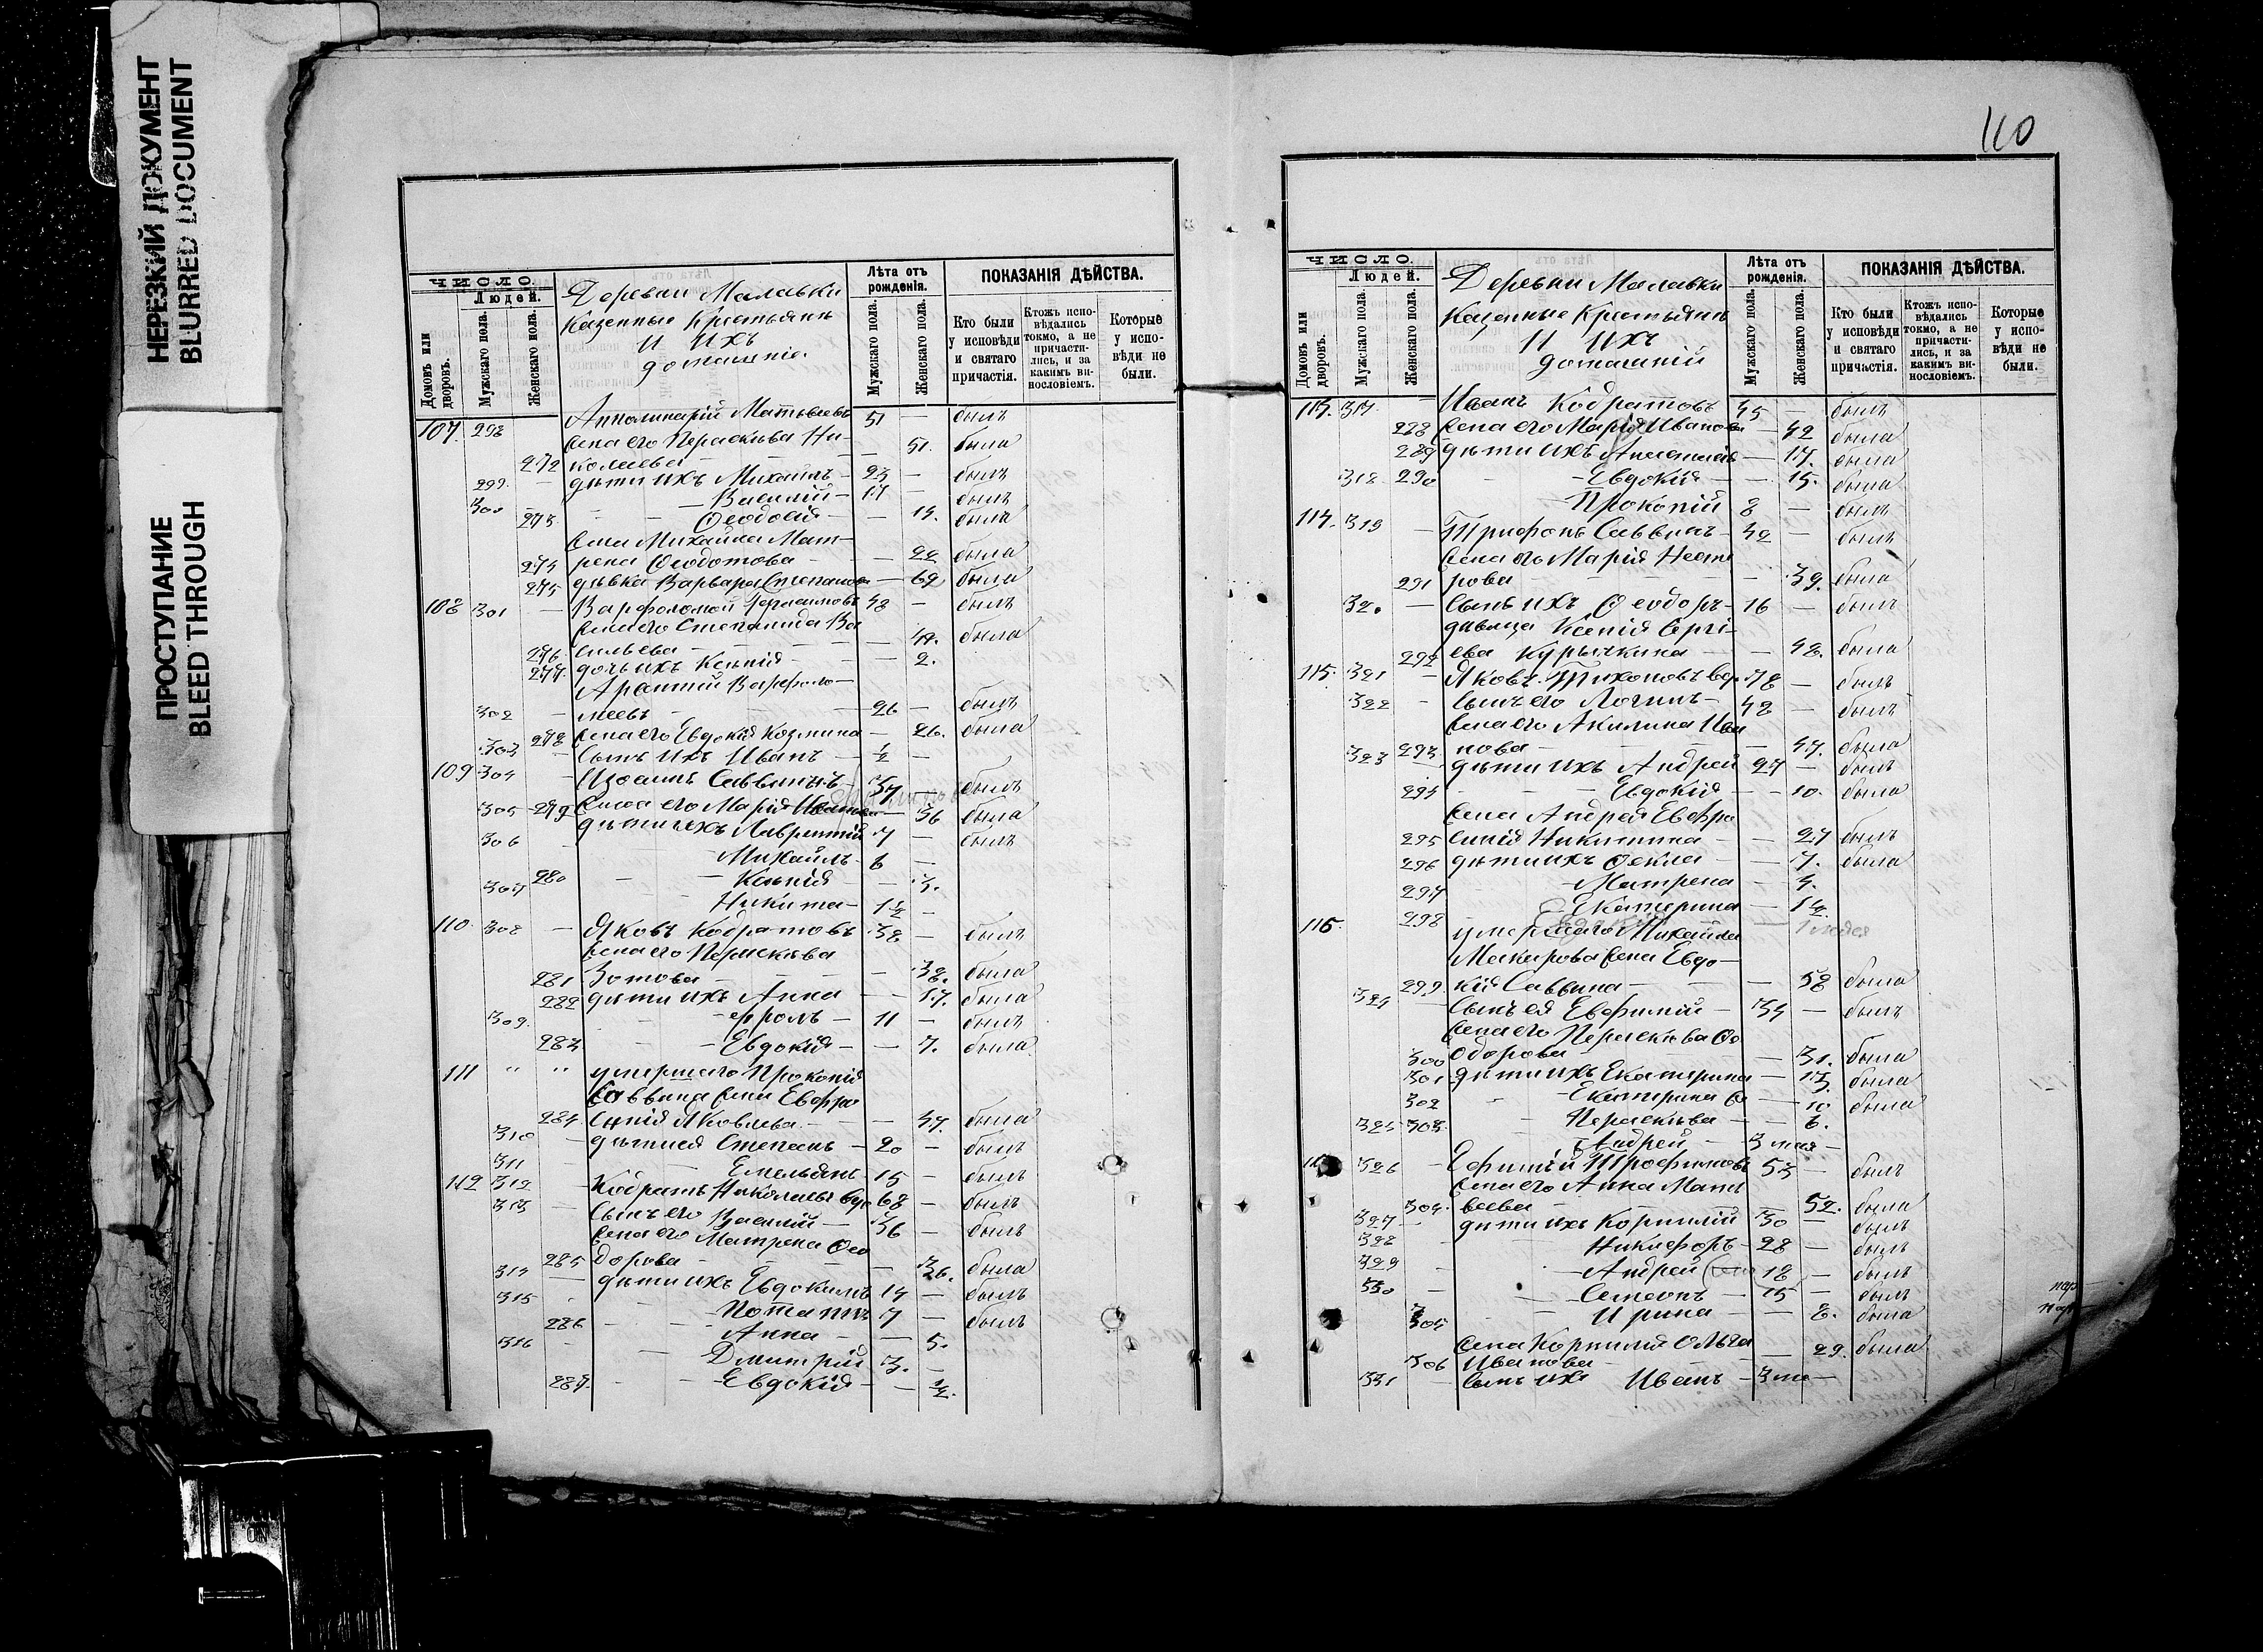 НЕРЕЗКИЙ ДОКУМЕНТ
BLURRED DOCUMENT
ПРОСТУПАНИЕ
BLEED THROUGH
ЧИСЛО.
Людей.
Домовъ или дворовъ.
Мужскаго пола.
Женскаго пола.
Деревни Малавки
Казенные Крестьяне
И ихъ
домашнiе
Лѣта отъ рожденiя.
Мужскаго пола.
Женскаго пола.
ПОКАЗАНIЯ ДѢЙСТВА.
Кто были у исповѣди и святаго причастiя.
Ктожъ испо-вѣдались токмо, а не причасти-лись, и за какимъ ви-нословiемъ.
Которые у испо-вѣди не были.
107. 298 Апполинарiй Матвѣевъ 51 — былъ
Жена его Параскева Ни-
272 колаева — 51. была
299. — дѣти ихъ Михаилъ — 23 — былъ
300 — Василiй — 17 — былъ
273. Ѳеодосiя — — 14. была
Жена Михаила Мат-
274 рена Ѳеодотова — — 22 была
275 дѣвка Варвара Степанова — 62 была
108 301 — Варфоломей 48 — былъ
Жена его Степанида Ва
276 сильева — 49. была
277. дочь ихъ Ксенiя — — 2.
Варфоло-
302 — меевъ — 26 — былъ
278 Жена его Евдокiя Козмина — 26. была
303 — сынъ ихъ Иванъ — ½ —
109 304 — Саввинъ — 37 — былъ
305 279 Жена его Марiя — 36 была
дѣти ихъ Лаврентiй 7 — былъ
306 - Михаилъ — 6 —
280 — Ксенiя — — 3.
307 Никита — 1½ —
110 308 — Яковъ Кодратовъ 38 — былъ
Жена его Параскева
281 Зотова — — 38. была
282 дѣти ихъ Анна — — 17. была
309. — Фролъ — 11 — былъ
283 — Евдокiя — — 7. была
111 " " умершаго Прокопiя
Саввина жена Евфро
284. синiя Яковлева — — 47. была
310 — дѣти ея Степанъ — 20 — былъ
311 Емельянъ 15 — былъ
112 312 Кодратъ Николаевъ вдо 68 — былъ
313 — сынъ его Василiй — 36 — былъ
Жена его Матрена Ѳео
285 дорова — — 36. была
314 — дѣти ихъ Евдокимъ 14 — былъ
315 - Потапъ 7 — былъ
286 — Анна — — 5.
316 — Дмитрiй 3. —
287. — Евдокiя — — ½.
110
ЧИСЛО.
Людей.
Домовъ или дворовъ.
Мужскаго пола.
Женскаго пола.
Деревни Малавки
Казенные Крестьяне
И ихъ
домашнiй
Лѣта отъ рожденiя.
Мужскаго пола.
Женскаго пола.
ПОКАЗАНIЯ ДѢЙСТВА.
Кто были у исповѣди и святаго причастiя.
Ктожъ испо-вѣдались токмо, а не причасти-лись, и за какимъ ви-нословiемъ.
Которые у испо-вѣди не были.
113. 317. — Иванъ Кодратовъ 45 — былъ
288 Жена его Марiя Иванова — 42 была
289 дѣти ихъ — 17. была
318 290 — Евдокiя — — 15. была
Прокопiй 8 — былъ
114. 319 — Трифонъ Саввинъ — 42 — былъ
Жена его Марiя Несте
291 рова — — 39. была
320 — сынъ ихъ Ѳеодоръ — 16 — былъ
дѣвица Ксенiя Сергi-
292 ева Курычкина — — 48. была
115. 321 — Яковъ Тихоновъ вдо. 78 — былъ
322 - сынъ его Логинъ — 48 — былъ
Жена его Акилина Ива
293 нова — — 47. была
323 - дѣти ихъ Андрей 27 — былъ
294 - — Евдокiя — — 10. была
Жена Андрея Евфро
295 синiя Никитина — — 27 былъ
296 дѣти ихъ Ѳекла — — 7. была
297 - Матрена — 4.
298 - Екатерина — 1½.
116. умершаго Михаила
Макарова жена Евдо-
299. кiя Саввина — — 58 была
324 сынъ ея Евфимiй — 34 — былъ
Жена его Параскева Ѳе
300 одорова — — 31. была
301 дѣти ихъ Екатерина — 13. была
302 — Екатерина — 10 была
325 303. — Параскева — — 6.
Андрей — 3 —
326 — Ефимiй Трофимовъ 53 — былъ
Жена его Анна Матв
304. ѣева — — 52. была
327 — дѣти ихъ Корнилiй 30 — былъ
328 Никифоръ — 28 — былъ
329 — Андрей 18 — былъ
330 — Семеонъ — 15 — былъ
305 — Ирина — — 8. была
Жена Корнилiя Ольга
306 Иванова — 29. была
331 — сынъ ихъ Иванъ — 3 —